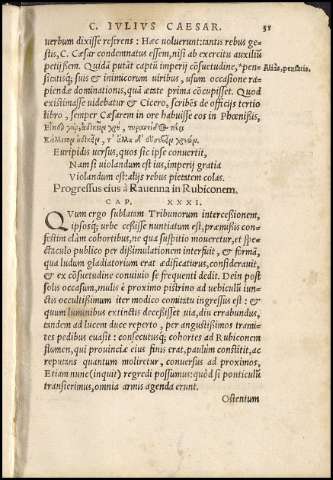 C. IVLIVS CAESAR. 51
uerbum dixisse referens: Hæc uoluerunt: tantis rebus ge-
stis, C. Cæsar condemnatus essem, nisi ab exercitu auxiliũ
petijßem. Quidã putãt captũ imperij cõsuetudine, *pen-
sitisq́; suis & inimicorum uiribus, usum occasione ra-
piendæ dominationis, quã ætate prima cõcupisset. Quod
existimasse uidebatur & Cicero, scribẽs de officijs tertio
libro, semper Cæsarem in ore habuisse eos in Phœnißis,
Euripidis uersus, quos sic ipse conuertit,
Nam si uiolandum est ius, imperij gratia
Violandum est: alijs rebus pietatem colas.
Progressus eius à Rauenna in Rubiconem.
CAP. XXXI.
QVum ergo sublatam Tribunorum intercesionem,
ipsosq́; urbe ceßisse nuntiatum est, præmißis con-
festim clàm cohortibus, ne qua suspitio moueretur, et spe-
ctaculo publico per dißimulationem interfuit, & formã,
qua ludum gladiatorium erat ædificaturus, considerauit,
& ex cõsuetudine conuiuio se frequenti dedit. Dein post
solis occasum, mulis è proximo pistrino ad uehiculũ iun-
ctis occultißimum iter modico comitatu ingressus est: &
quum luminibus extinctis deceßisset uia, diu errabundus,
tandem ad lucem duce reperto, per angustißimos trami-
tes pedibus euasit: consecutusq́; cohortes ad Rubiconem
flumen, qui prouinciæ eius finis erat, paulũm constitit, ac
reputans quantum moliretur, conuersus ad proximos,
Etiam nunc (inquit) regredi possumus: quòd si ponticulũ
transierimus, omnia armis agenda erunt.
Ostentum